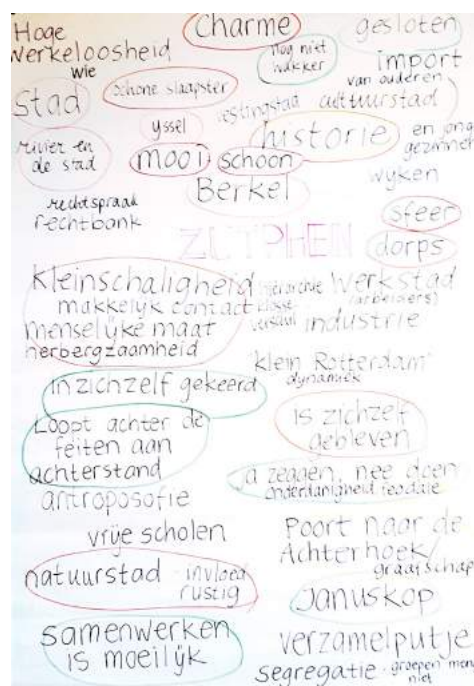 Hoge
werkeloosheid
wie
Charme
gesloten
nog niet
wakker
import
van ouderen
en jong
gezinnen
Stad
schone slaapster
vestingstad
cultuurstad
yssel
historie
rivier en
de stad
mooi
schoon
wijken
Berkel
rechtspraak
rechtbank
sfeer
ZUTPHEN
dorps
Kleinschaligheid
makkelijk contact
menselijke maat
herbergzaamheid
hiërarchie
klasse
verschil
Werkstad
(arbeiders)
industrie
"klein Rotterdam"
dynamiek
in zichzelf gekeerd
is zichzelf
gebleven
Loopt achter de
feiten aan
achterstand
ja zeggen, nee doen
onderdanigheid feodale
antroposofie
vrije scholen
Poort naar de
Achterhoek/
graafschap
natuurstad - invloed
rustig
Januskop
samenwerken
is moeilijk
verzamelputje
segregatie - groepen men
niet